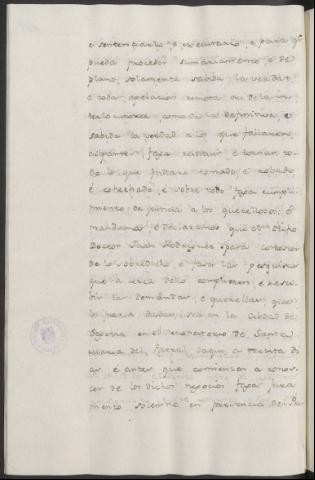 e sentenciarlo e executarlo, e para qᵉ
pueda proceder sumariamente, e de
plano, solamente sabida la verdat,
e toda apelacion remota asi de la in
terlocutoria como de la definitiva, e
sabida la verdad a lo que fallaren
culpante faga restituir e tornar to
do lo que fallare tomado, e robado
é cohechado, e sobre todo faga cumpli
miento de justicia a los querellosos: é
mandamos, é declaramos que el dicho
Doctor Juan Rodrigues para conoscer
de lo sobredicho, e faser las pesquisas
que a cerca dello cumplieren, é resce
bir las demandas, é querellas, que
lo sera dadas, sea en la cibdad de
Segovia en el Monesterio de Santa
Maria del Parral daqui a treinta di
as, é antes que comience a conos
cer de los dichos negocios faga jura
mento solemne en presencia del